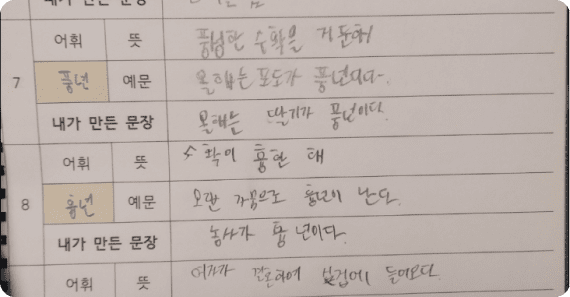 내가 만든 문장
어휘 뜻 풍성한 수확을 거둔해
7 풍년 예문 올해는 포도가 풍년이다.
내가 만든 문장 올해는 딸기가 풍년이다.
어휘 뜻 수확이 흉한 해
8 흉년 예문 오랜 가뭄으로 흉년이 난다.
내가 만든 문장 농사가 흉년이다.
어휘 뜻 여자가 결혼하여 남편집에 들어오다.